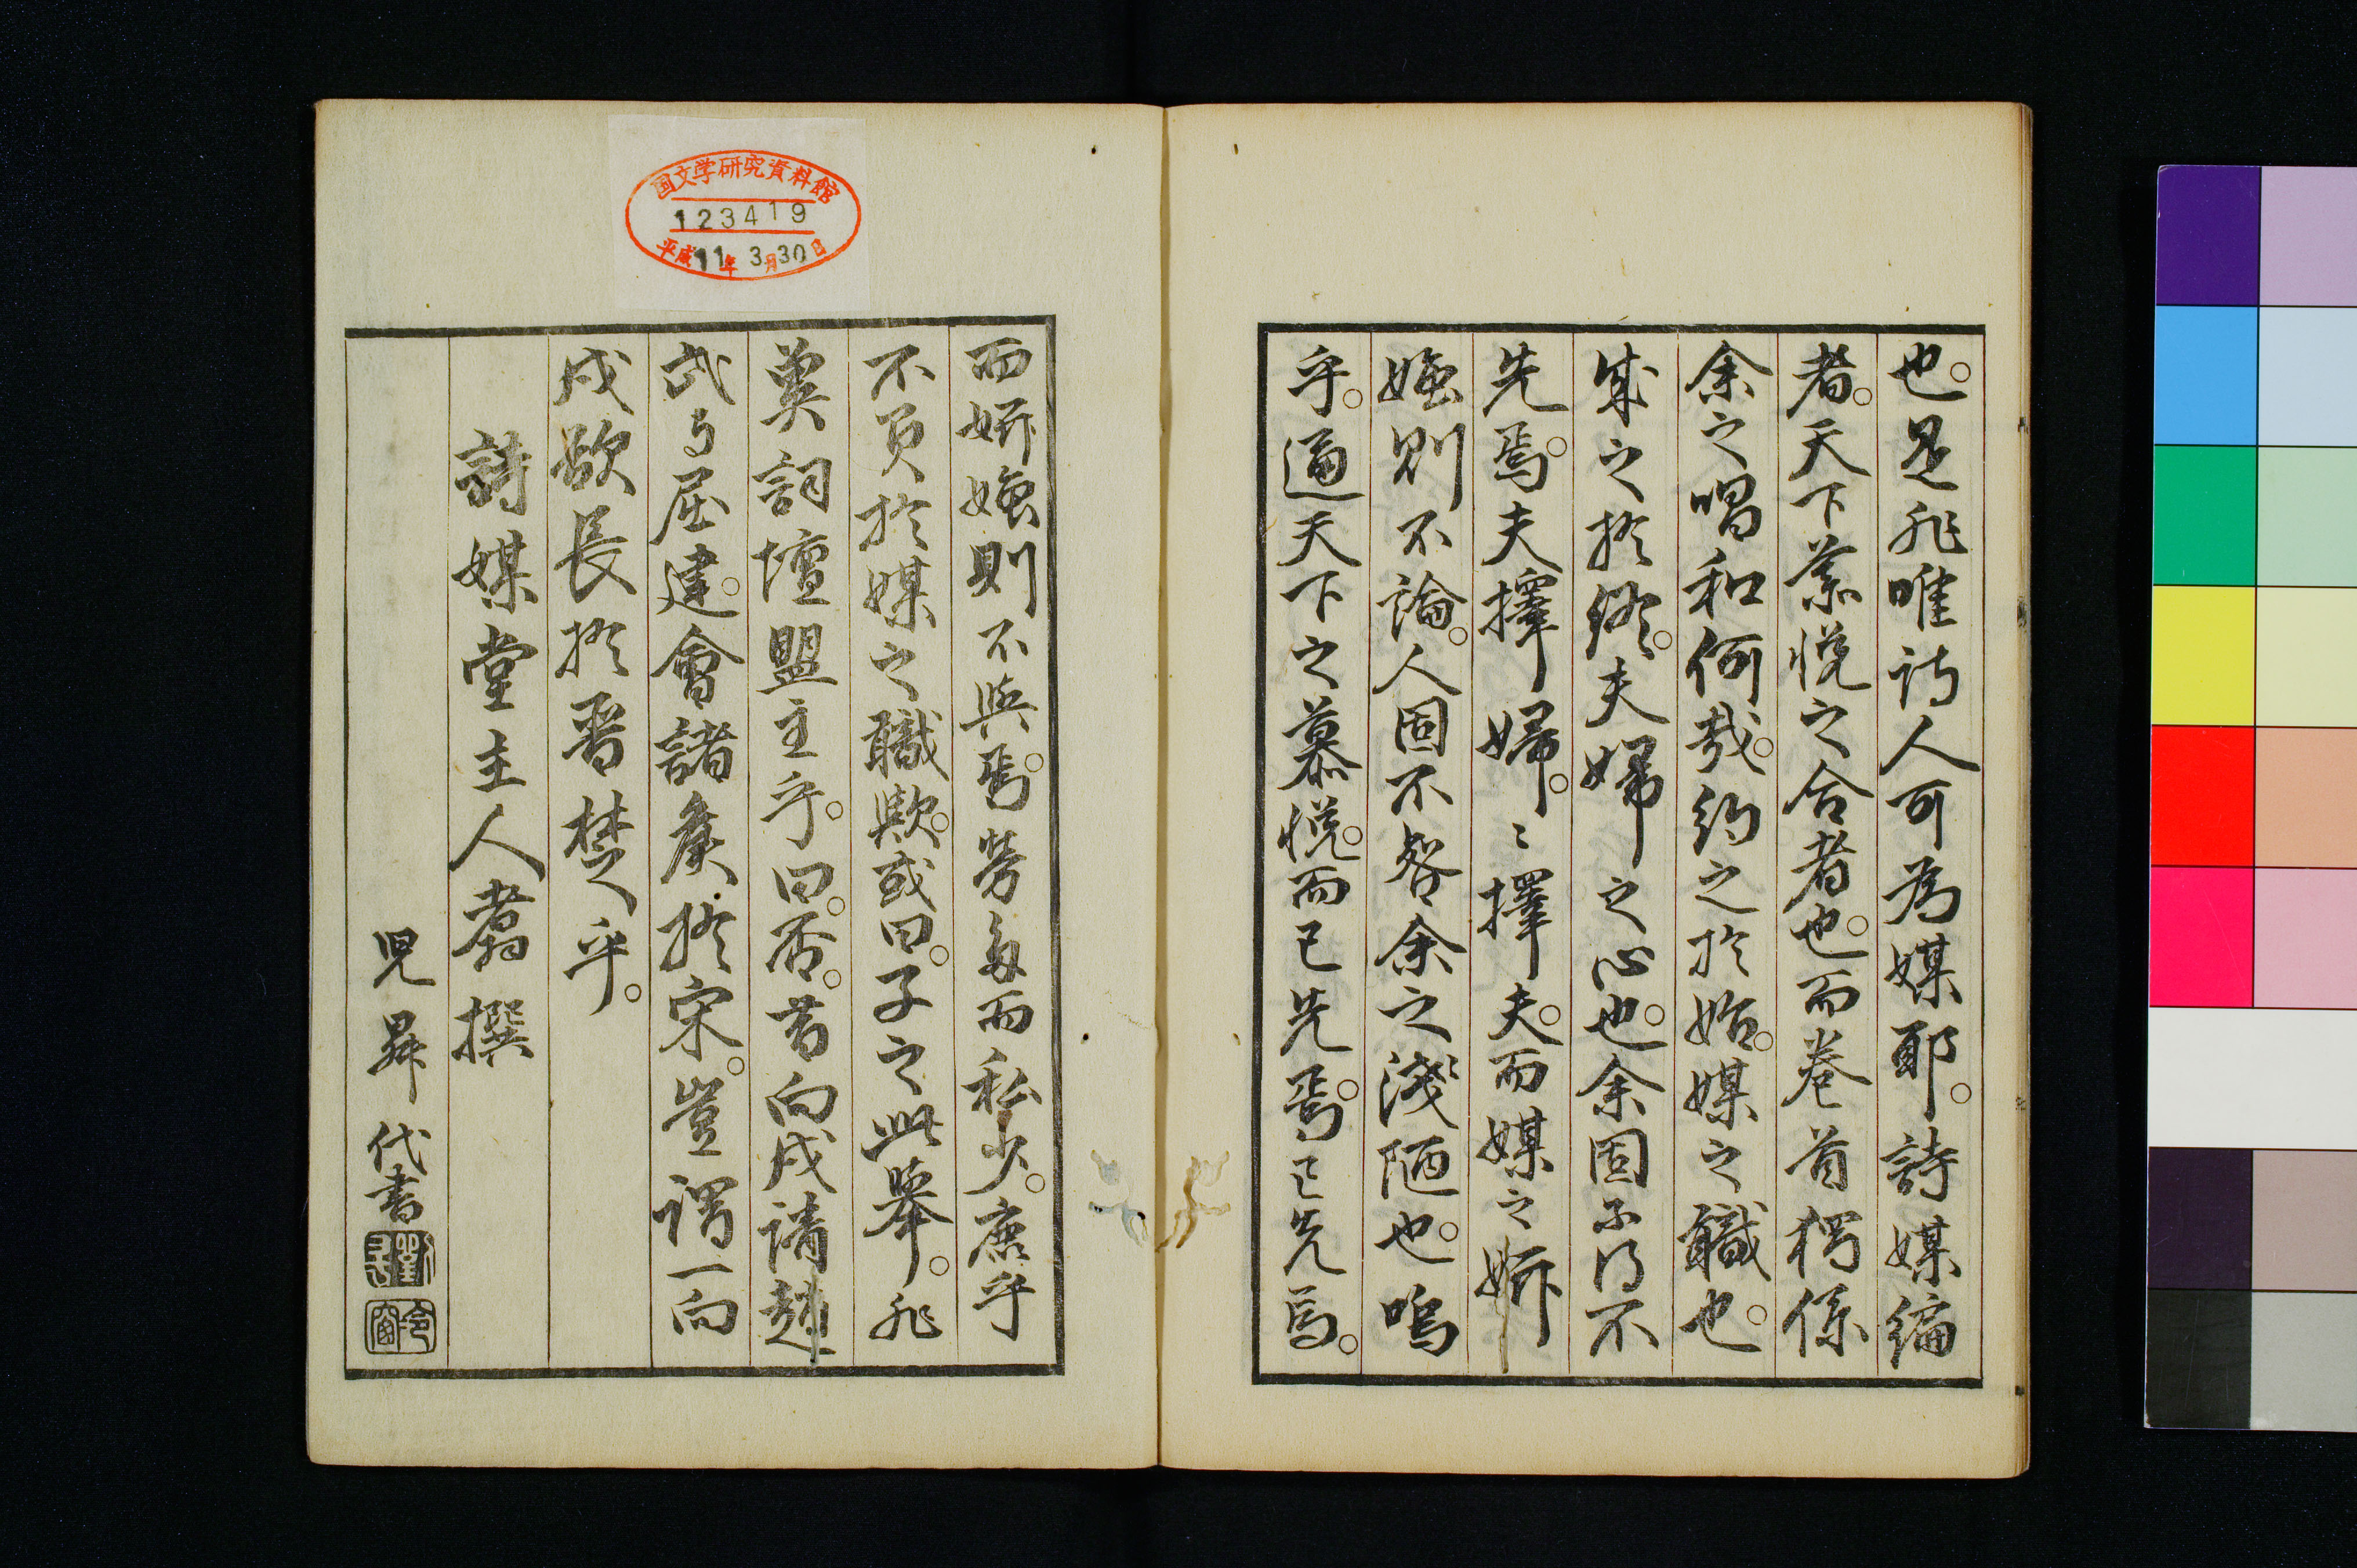 也。是非唯詩人可為媒耶。詩媒編
者。天下慕悦之合者也。而巻首猶係
余之唱和何哉。約之於始。媒之職也。
成之於終。夫婦之心也。余固不得不
先焉。夫擇婦。〻擇夫。而媒之妍
媸則不論。人固不咎余之淺陋也。嗚
乎。通天下之慕悦。而已先焉。已先焉。
而妍媸則不與焉。労多而私少。庶乎
不負於媒之職歟。或曰。子之此擧。非
奠詞壇盟主乎。曰。否。昔向戌請趙
武与屈建。會諸矦於宋。豈謂一向
戌欲長於晋楚乎。
詩媒堂主人耆撰
児昇代書
国文学研究資料館
123419
平成11年3月30日